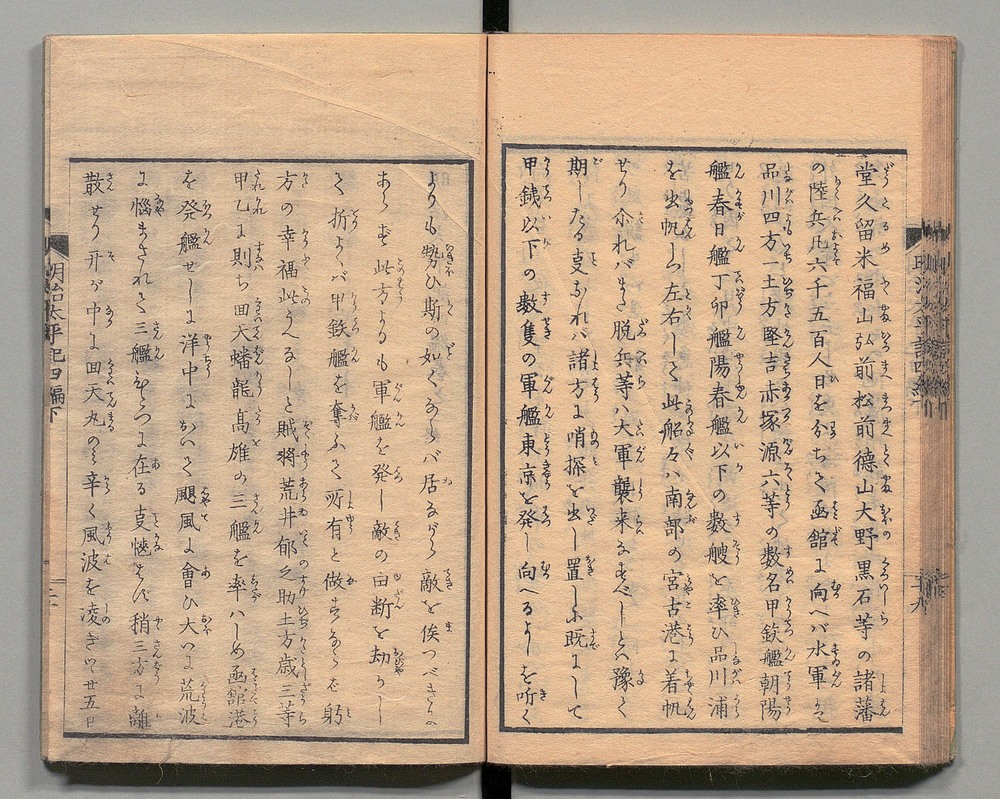 堂久留米福山弘前松前德山大野黒石等の諸藩
の陸兵凡六千五百人日を分ちて函館に向へバ水軍
品川四方一土方堅吉赤塚源六等の数名甲鉃艦朝陽
艦春日艦丁卯艦陽春艦以下の数艘を率ひ品川浦
を出帆しつ左右して此船々ハ南部の宮古港に着帆
せり尒れバまた脱兵等ハ大軍襲来なすべしとハ豫て
期したる支なれバ諸方に哨探を出し置しふ既にして
甲鉄以下の數隻の軍艦東京を発し向へるよしを听く
よりも勢ひ斯の如くならバ居ながら敵を俟つべきにも
あらず此方よりも軍艦を発し敵の油断を劫かし
て折よくバ甲鉄艦を奪ふて所有と做すならバ躬
方の幸福此うへなしと賊将荒井郁之助土方歳三等
甲乙に則ち回天蟠龍髙雄の三艦を率ハしめ函舘港
を発艦せしに洋中に於いて颶風に會ひ大いに荒波
に悩まされて三艦をのづに在る支愜はず稍三方に離
散せり开が中に回天丸のミ辛く風波を凌ぎツヽ廿五日
明治太平記四編下